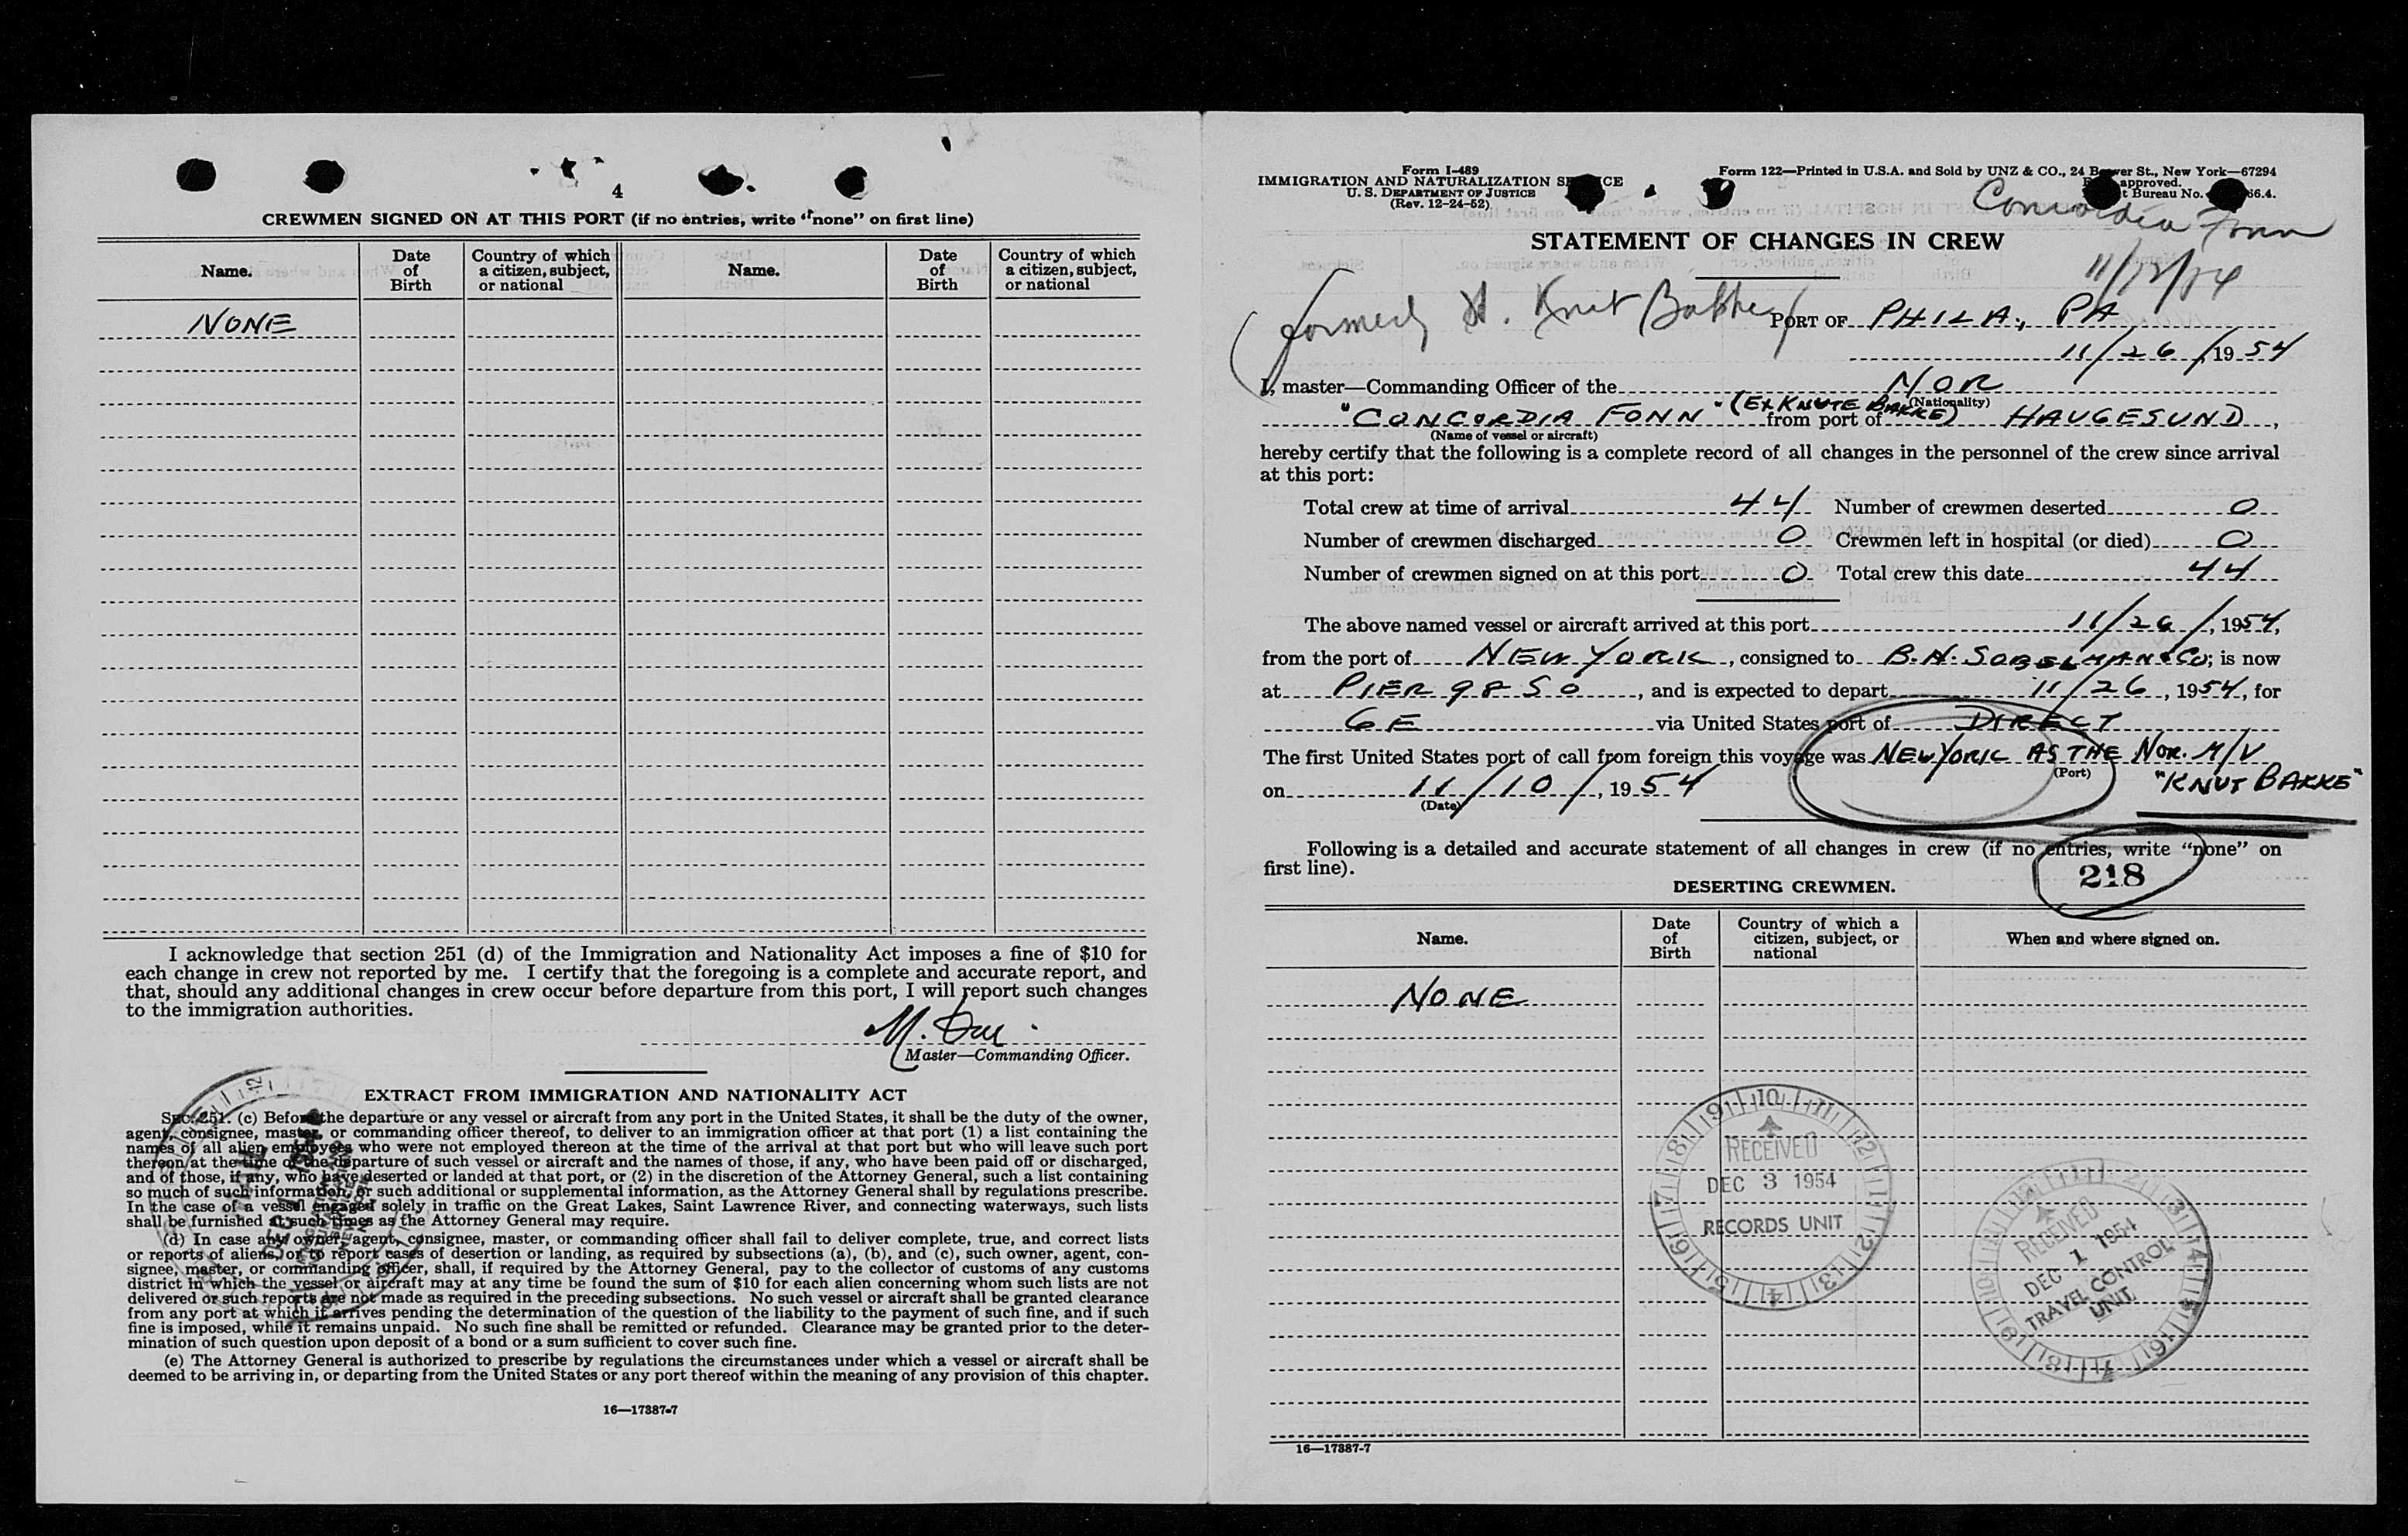 4
CREWMEN SIGNED ON AT THIS PORT (if no entries, write "none" on first line)
Name.
Date of Birth
Country of which a citizen, subject, or national
Name.
Date of Birth
Country of which a citizen, subject, or national
NONE
I acknowledge that section 251 (d) of the Immigration and Nationality Act imposes a fine of $10 for
each change in crew not reported by me. I certify that the foregoing is a complete and accurate report, and
that, should any additional changes in crew occur before departure from this port, I will report such changes
to the immigration authorities.
M.
Master—Commanding Officer.
EXTRACT FROM IMMIGRATION AND NATIONALITY ACT
SEC. 251. (c) Before the departure or any vessel or aircraft from any port in the United States, it shall be the duty of the owner,
agent, consignee, master, or commanding officer thereof, to deliver to an immigration officer at that port (1) a list containing the
names of all alien employees who were not employed thereon at the time of the arrival at that port but who will leave such port
thereon at the time of the departure of such vessel or aircraft and the names of those, if any, who have been paid off or discharged,
and of those, if any, who have deserted or landed at that port, or (2) in the discretion of the Attorney General, such a list containing
so much of such information, or such additional or supplemental information, as the Attorney General shall by regulations prescribe.
In the case of a vessel engaged solely in traffic on the Great Lakes, Saint Lawrence River, and connecting waterways, such lists
shall be furnished at such times as the Attorney General may require.
(d) In case any owner, agent, consignee, master, or commanding officer shall fail to deliver complete, true, and correct lists
or reports of aliens, or to report cases of desertion or landing, as required by subsections (a), (b), and (c), such owner, agent, con-
signee, master, or commanding officer, shall, if required by the Attorney General, pay to the collector of customs of any customs
district in which the vessel or aircraft may at any time be found the sum of $10 for each alien concerning whom such lists are not
delivered or such reports are not made as required in the preceding subsections. No such vessel or aircraft shall be granted clearance
from any port at which it arrives pending the determination of the question of the liability to the payment of such fine, and if such
fine is imposed, while it remains unpaid. No such fine shall be remitted or refunded. Clearance may be granted prior to the deter-
mination of such question upon deposit of a bond or a sum sufficient to cover such fine.
(e) The Attorney General is authorized to prescribe by regulations the circumstances under which a vessel or aircraft shall be
deemed to be arriving in, or departing from the United States or any port thereof within the meaning of any provision of this chapter.
16—17387-7
Form I-489
IMMIGRATION AND NATURALIZATION
U. S. DEPARTMENT OF JUSTICE
(Rev. 12-24-52)
Form 122—Printed in U.S.A. and Sold by UNZ & CO., 24 St., New York—67294
approved.
Bureau No. 66.4.
Concordia Fonn
STATEMENT OF CHANGES IN CREW
formerly Knut Bakke
PORT OF PHILA., PA
11/26/, 19 54
I, master—Commanding Officer of the NOR
(Nationality)
"CONCORDIA FONN" (EX KNUTE BAKKE) from port of HAUGESUND,
(Name of vessel or aircraft)
hereby certify that the following is a complete record of all changes in the personnel of the crew since arrival
at this port:
Total crew at time of arrival 44 Number of crewmen deserted 0
Number of crewmen discharged 0 Crewmen left in hospital (or died) 0
Number of crewmen signed on at this port 0 Total crew this date 44
The above named vessel or aircraft arrived at this port 11/26/, 1954,
from the port of NEW YORK, consigned to B.H. SOBELMAN & CO; is now
at PIER 98 SO, and is expected to depart 11/26, 1954, for
GE via United States port of DIRECT
The first United States port of call from foreign this voyage was NEW YORK AS THE NOR. M/V
(Port)
"KNUT BAKKE"
on 11/10/, 19 54
(Date)
Following is a detailed and accurate statement of all changes in crew (if no entries, write "none" on
first line).
218
DESERTING CREWMEN.
Name.
Date of Birth
Country of which a citizen, subject, or national
When and where signed on.
NONE
RECEIVED
DEC 3 1954
RECORDS UNIT
RECEIVED
DEC 1 1954
TRAVEL CONTROL
UNIT
16—17387-7